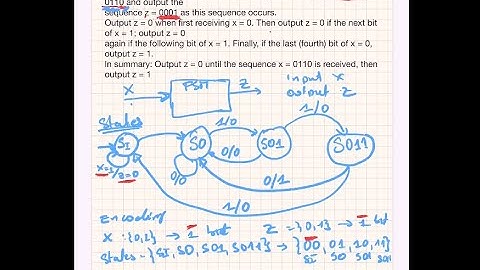 0110 and output the
sequence z = 0001 as this sequence occurs.
Output z = 0 when first receiving x = 0. Then output z = 0 if the next bit
of x = 1; output z = 0
again if the following bit of x = 1. Finally, if the last (fourth) bit of x = 0,
output z = 1.
In summary: Output z = 0 until the sequence x = 0110 is received, then
output z = 1
X FSM Z input X
output Z
States 1/0 1/0
SI S0 S01 S011
0/0
X=1/Z=0 0/0 0/1
1/0
Encoding
X : {0,1} → 1 bit Z = {0,1} → 1 bit
States = {SI, S0, S01, S011} → {00, 01, 10, 11}
SI S0 S01 S011